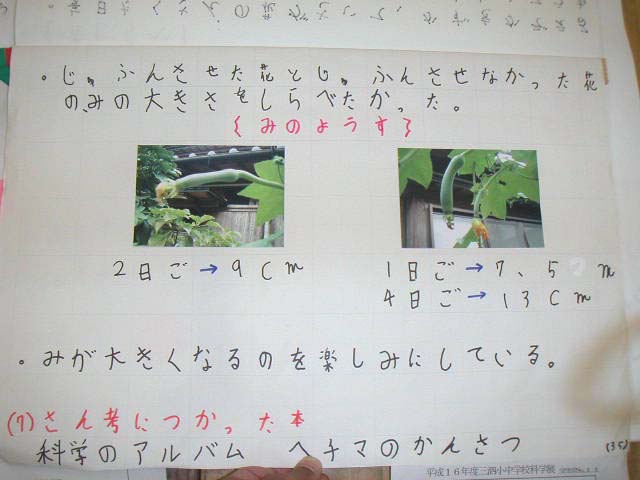 。じゅふんさせた花とじゅふんさせなかった花
のみの大きさをしらべたかった。
{みのようす}
2日ご→9cm
1日ご→7、5 m
4日ご→13cm
。みが大きくなるのを楽しみにしている。
(7)さん考につかった本
科学のアルバム ヘチマのかんさつ
(35)
平成16年度三泗小中学校科学展